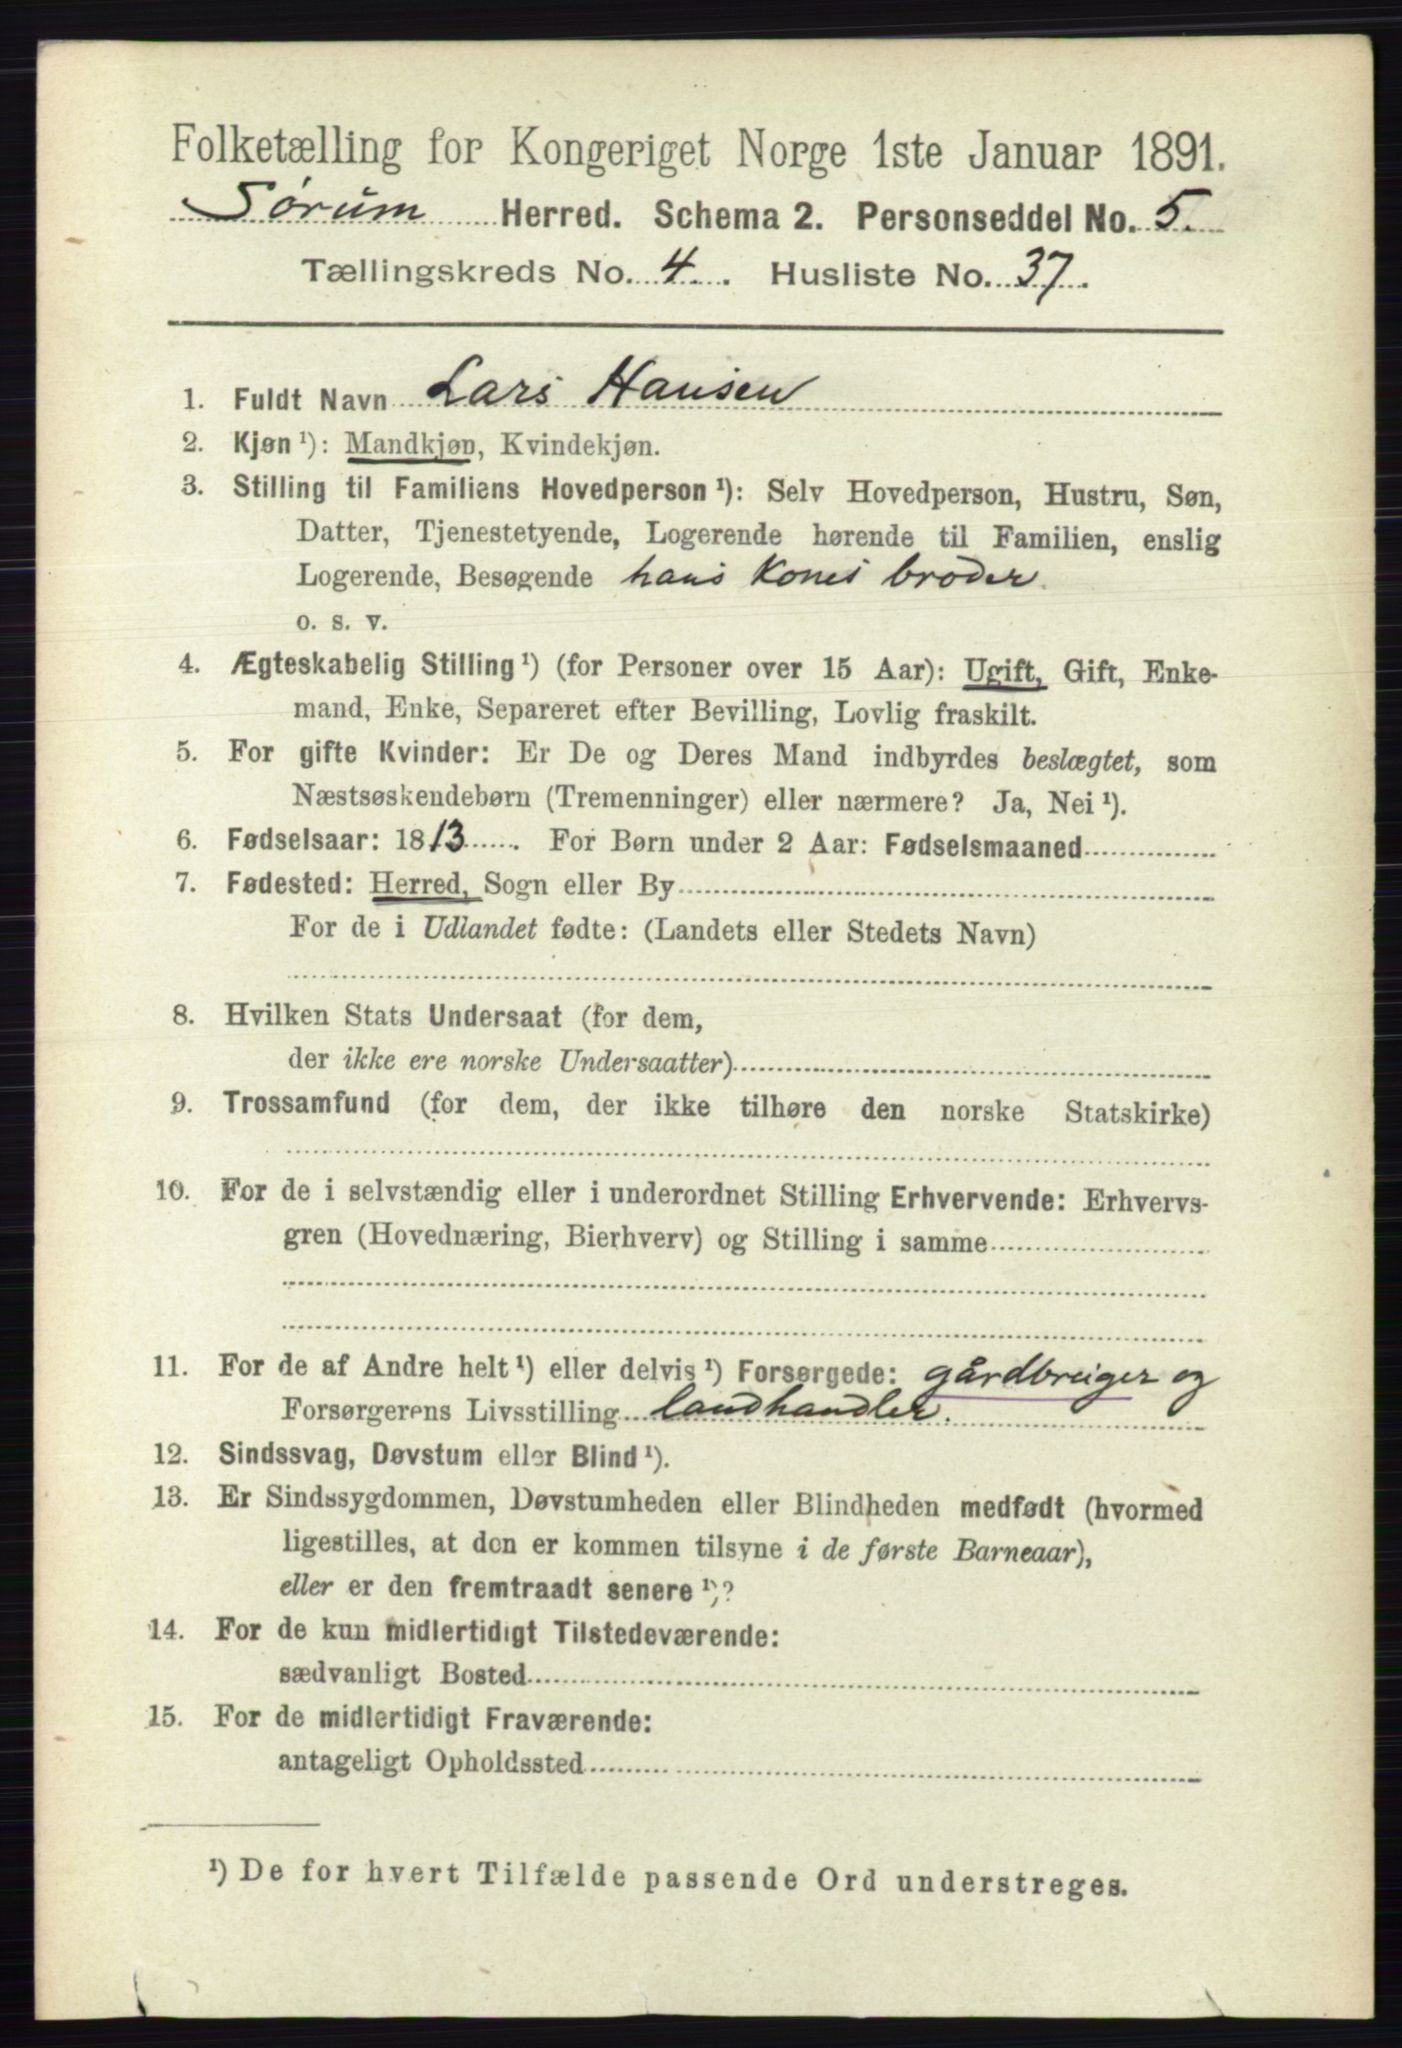 Folketælling for Kongeriget Norge 1ste Januar 1891.
Sørum Herred. Schema 2. Personseddel No. 5.
Tællingskreds No. 4. Husliste No. 37.
1. Fuldt Navn Lars Hansen
2. Kjøn ¹): Mandkjøn, Kvindekjøn.
3. Stilling til Familiens Hovedperson ¹): Selv Hovedperson, Hustru, Søn,
Datter, Tjenestetyende, Logerende hørende til Familien, enslig
Logerende, Besøgende hans Kones broder.
o. s. v.
4. Ægteskabelig Stilling ¹) (for Personer over 15 Aar): Ugift, Gift, Enke-
mand, Enke, Separeret efter Bevilling, Lovlig fraskilt.
5. For gifte Kvinder: Er De og Deres Mand indbyrdes beslægtet, som
Næstsøskendebørn (Tremenninger) eller nærmere? Ja, Nei ¹).
6. Fødselsaar: 1813. For Børn under 2 Aar: Fødselsmaaned
7. Fødested: Herred, Sogn eller By
For de i Udlandet fødte: (Landets eller Stedets Navn)
8. Hvilken Stats Undersaat (for dem,
der ikke ere norske Undersaatter)
9. Trossamfund (for dem, der ikke tilhøre den norske Statskirke)
10. For de i selvstændig eller i underordnet Stilling Erhvervende: Erhvervs-
gren (Hovednæring, Bierhverv) og Stilling i samme
11. For de af Andre helt ¹) eller delvis ¹) Forsørgede: gårdbruger og
Forsørgerens Livsstilling landhandler.
12. Sindssvag, Døvstum eller Blind ¹).
13. Er Sindssygdommen, Døvstumheden eller Blindheden medfødt (hvormed
ligestilles, at den er kommen tilsyne i de første Barneaar),
eller er den fremtraadt senere ¹)?
14. For de kun midlertidigt Tilstedeværende:
sædvanligt Bosted
15. For de midlertidigt Fraværende:
antageligt Opholdssted
¹) De for hvert Tilfælde passende Ord understreges.